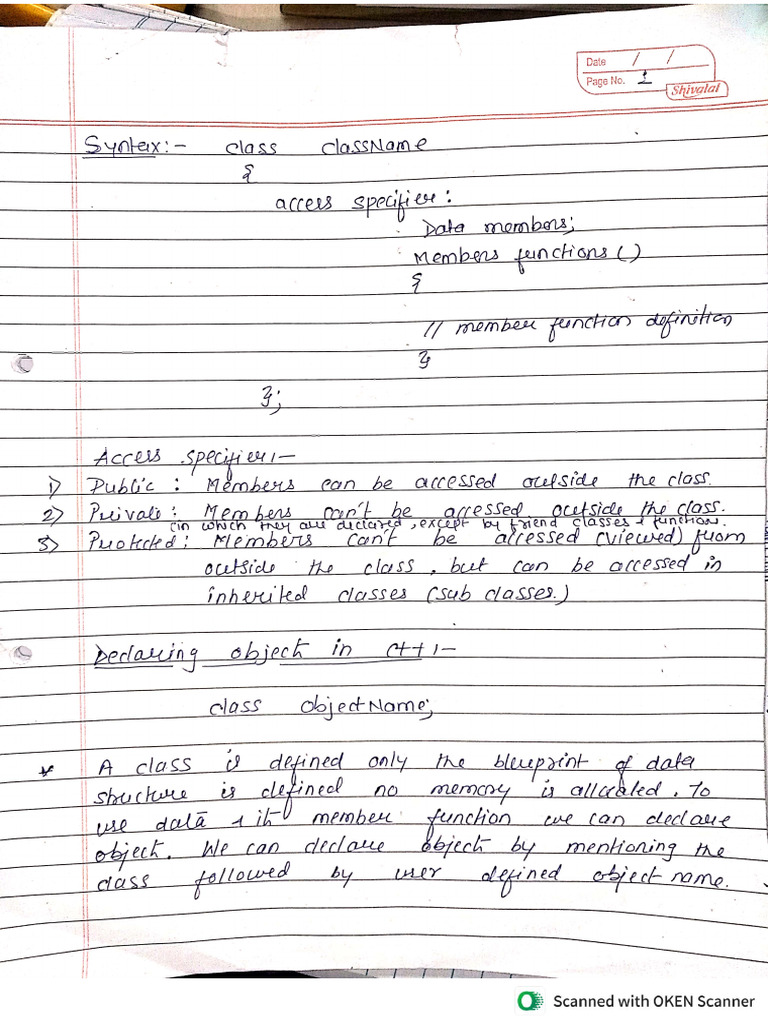 Date / /
Page No. 1
Shivalal
Syntax:- class className
{
access specifier:
Data members;
Members functions()
{
// member function definition
}
};
Access specifier:-
1) Public: Members can be accessed outside the class.
2) Private: Members can't be accessed outside the class.
(in which they are declared, except by friend classes & function.
3) Protected: Members can't be accessed (viewed) from
outside the class, but can be accessed in
inherited classes (sub classes.)
Declaring object in C++:-
class ObjectName;
* A class is defined only the blueprint of data
structure is defined no memory is allocated. To
use data & it member function we can declare
object. We can declare object by mentioning the
class followed by user defined object name.
Scanned with OKEN Scanner